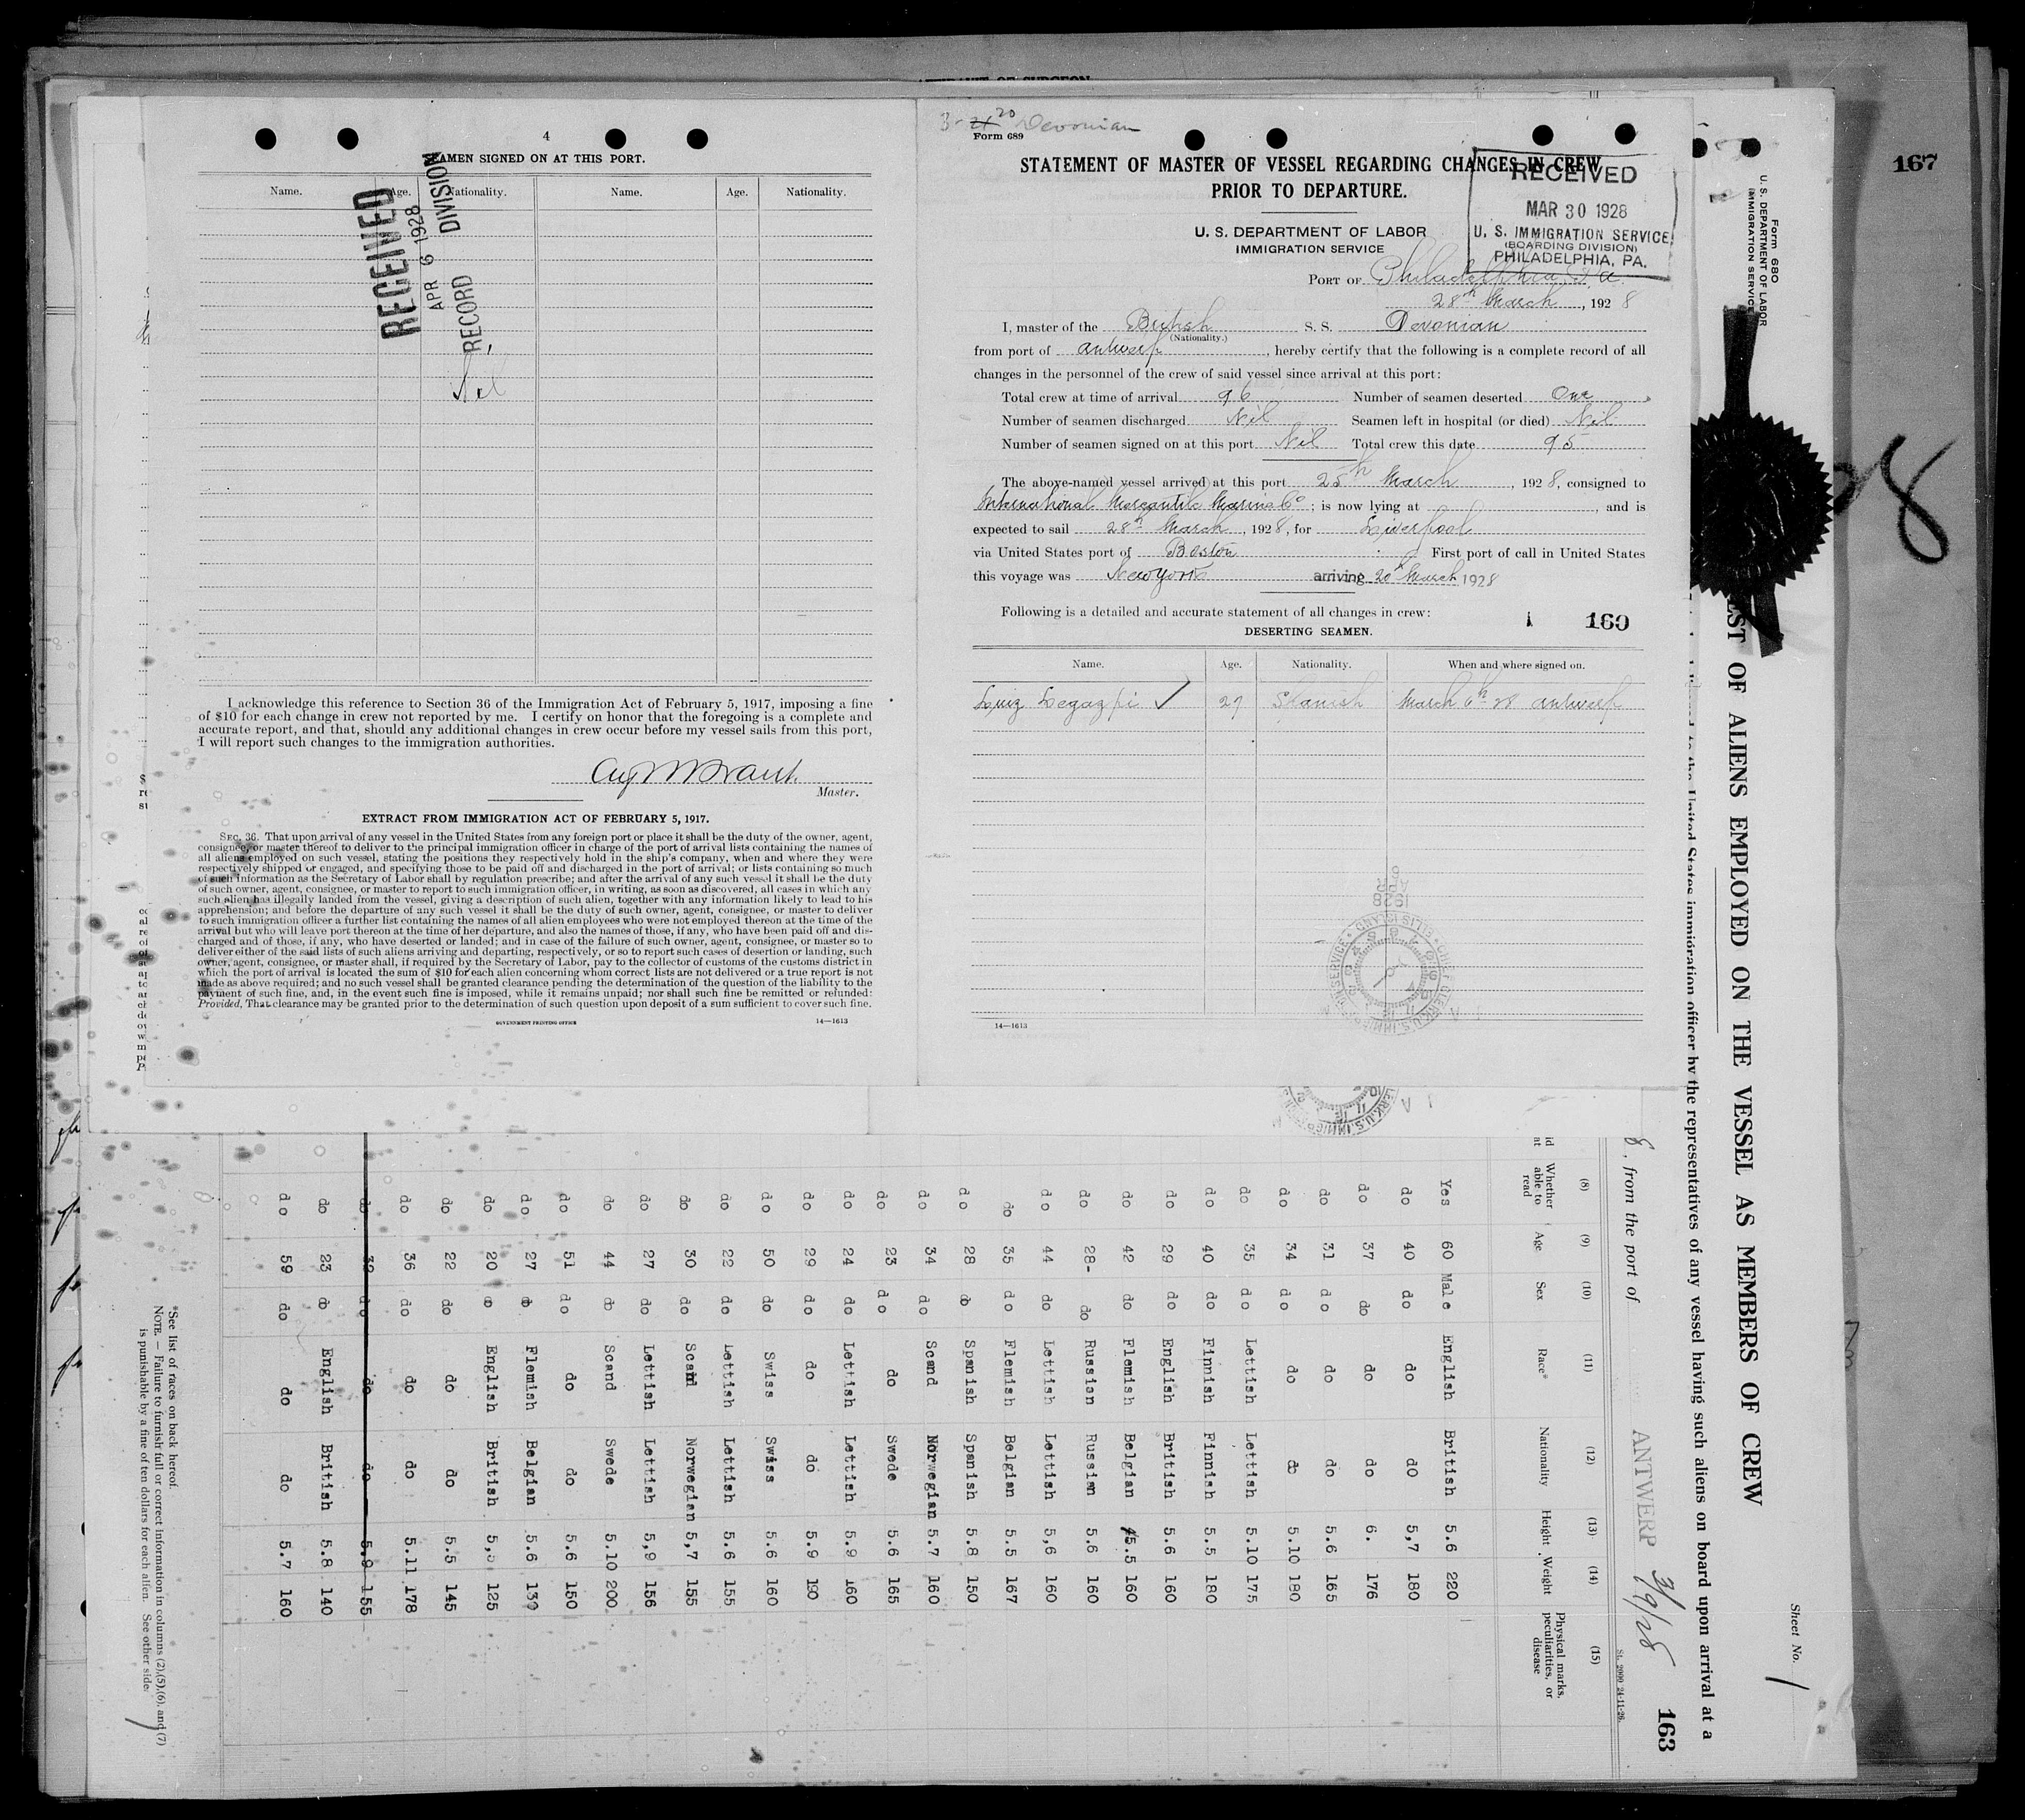 4
SEAMEN SIGNED ON AT THIS PORT.
Name. Age. Nationality. Name. Age. Nationality.
RECEIVED
APR 6 1928
RECORD DIVISION
Nil
I acknowledge this reference to Section 36 of the Immigration Act of February 5, 1917, imposing a fine
of $10 for each change in crew not reported by me. I certify on honor that the foregoing is a complete and
accurate report, and that, should any additional changes in crew occur before my vessel sails from this port,
I will report such changes to the immigration authorities.
Master.
EXTRACT FROM IMMIGRATION ACT OF FEBRUARY 5, 1917.
SEC. 36. That upon arrival of any vessel in the United States from any foreign port or place it shall be the duty of the owner, agent,
consignee, or master thereof to deliver to the principal immigration officer in charge of the port of arrival lists containing the names of
all aliens employed on such vessel, stating the positions they respectively hold in the ship's company, when and where they were
respectively shipped or engaged, and specifying those to be paid off and discharged in the port of arrival; or lists containing so much
of such information as the Secretary of Labor shall by regulation prescribe; and after the arrival of any such vessel it shall be the duty
of such owner, agent, consignee, or master to report to such immigration officer, in writing, as soon as discovered, all cases in which any
such alien has illegally landed from the vessel, giving a description of such alien, together with any information likely to lead to his
apprehension; and before the departure of any such vessel it shall be the duty of such owner, agent, consignee, or master to deliver
to such immigration officer a further list containing the names of all alien employees who were not employed thereon at the time of the
arrival but who will leave port thereon at the time of her departure, and also the names of those, if any, who have been paid off and dis-
charged and of those, if any, who have deserted or landed; and in case of the failure of such owner, agent, consignee, or master so to
deliver either of the said lists of such aliens arriving and departing, respectively, or so to report such cases of desertion or landing, such
owner, agent, consignee, or master shall, if required by the Secretary of Labor, pay to the collector of customs of the customs district in
which the port of arrival is located the sum of $10 for each alien concerning whom correct lists are not delivered or a true report is not
made as above required; and no such vessel shall be granted clearance pending the determination of the question of the liability to the
payment of such fine, and, in the event such fine is imposed, while it remains unpaid; nor shall such fine be remitted or refunded:
Provided, That clearance may be granted prior to the determination of such question upon deposit of a sum sufficient to cover such fine.
GOVERNMENT PRINTING OFFICE 14—1613
3- 20 Devonian
Form 689
STATEMENT OF MASTER OF VESSEL REGARDING CHANGES IN CREW
PRIOR TO DEPARTURE.
RECEIVED
MAR 30 1928
U. S. IMMIGRATION SERVICE
(BOARDING DIVISION)
PHILADELPHIA, PA.
U. S. DEPARTMENT OF LABOR
IMMIGRATION SERVICE
PORT OF Philadelphia Pa.
28th March, 1928
I, master of the British S. S. Devonian
(Nationality.)
from port of Antwerp, hereby certify that the following is a complete record of all
changes in the personnel of the crew of said vessel since arrival at this port:
Total crew at time of arrival 96 Number of seamen deserted One
Number of seamen discharged Nil Seamen left in hospital (or died) Nil
Number of seamen signed on at this port Nil Total crew this date 95
The above-named vessel arrived at this port 25th March, 1928, consigned to
International Mercantile Marine Co; is now lying at , and is
expected to sail 28th March, 1928, for Liverpool
via United States port of Boston First port of call in United States
this voyage was New York arriving 20th March 1928
Following is a detailed and accurate statement of all changes in crew:
1 160
DESERTING SEAMEN.
Name. Age. Nationality. When and where signed on.
Luiz Legazpi ✓ 29 Spanish March 6th 28 Antwerp
1928
APR 6
14—1613
167
28
Form 680
U. S. DEPARTMENT OF LABOR
IMMIGRATION SERVICE
Sheet No. 1
LIST OF ALIENS EMPLOYED ON THE VESSEL AS MEMBERS OF CREW
United States immigration officer by the representatives of any vessel having such aliens on board upon arrival at a
8, from the port of ANTWERP 3/9/28
163
St. 2000 24-11-26.
(8) (9) (10) (11) (12) (13) (14) (15)
Whether able to read Age Sex Race* Nationality Height Weight Physical marks, peculiarities, or disease
Yes 60 Male English British 5.6 220
do 40 do do do 5,7 180
do 37 do do do 6. 176
do 31 do do do 5.6 165
do 34 do do do 5.10 180
do 35 do Lettish Lettish 5.10 175
do 40 do Finnish Finnish 5.5 180
do 29 do English British 5.6 160
do 42 do Flemish Belgian 5.5 160
do 28- do Russian Russian 5.6 160
do 44 do Lettish Lettish 5,6 160
do 35 do Flemish Belgian 5.5 167
do 28 do Spanish Spanish 5.8 150
do 34 do Scand Norwegian 5.7 160
do 23 do do Swede 5.6 165
do 24 do Lettish Lettish 5.9 160
do 29 do do do 5.9 180
do 50 do Swiss Swiss 5.6 160
do 22 do Lettish Lettish 5.6 155
do 30 do Scand Norwegian 5,7 155
do 27 do Lettish Lettish 5,9 156
do 44 do Scand Swede 5.10 200
do 51 do do do 5.6 150
do 27 do Flemish Belgian 5.6 139
do 20 do English British 5,5 125
do 22 do do do 5.5 145
do 36 do do do 5.11 178
do 32 do do do 5.9 155
do 23 do English British 5.8 140
do 59 do do do 5.7 160
*See list of races on back hereof.
NOTE. — Failure to furnish full or correct information in columns (2),(5),(6), and (7)
is punishable by a fine of ten dollars for each alien. See other side.